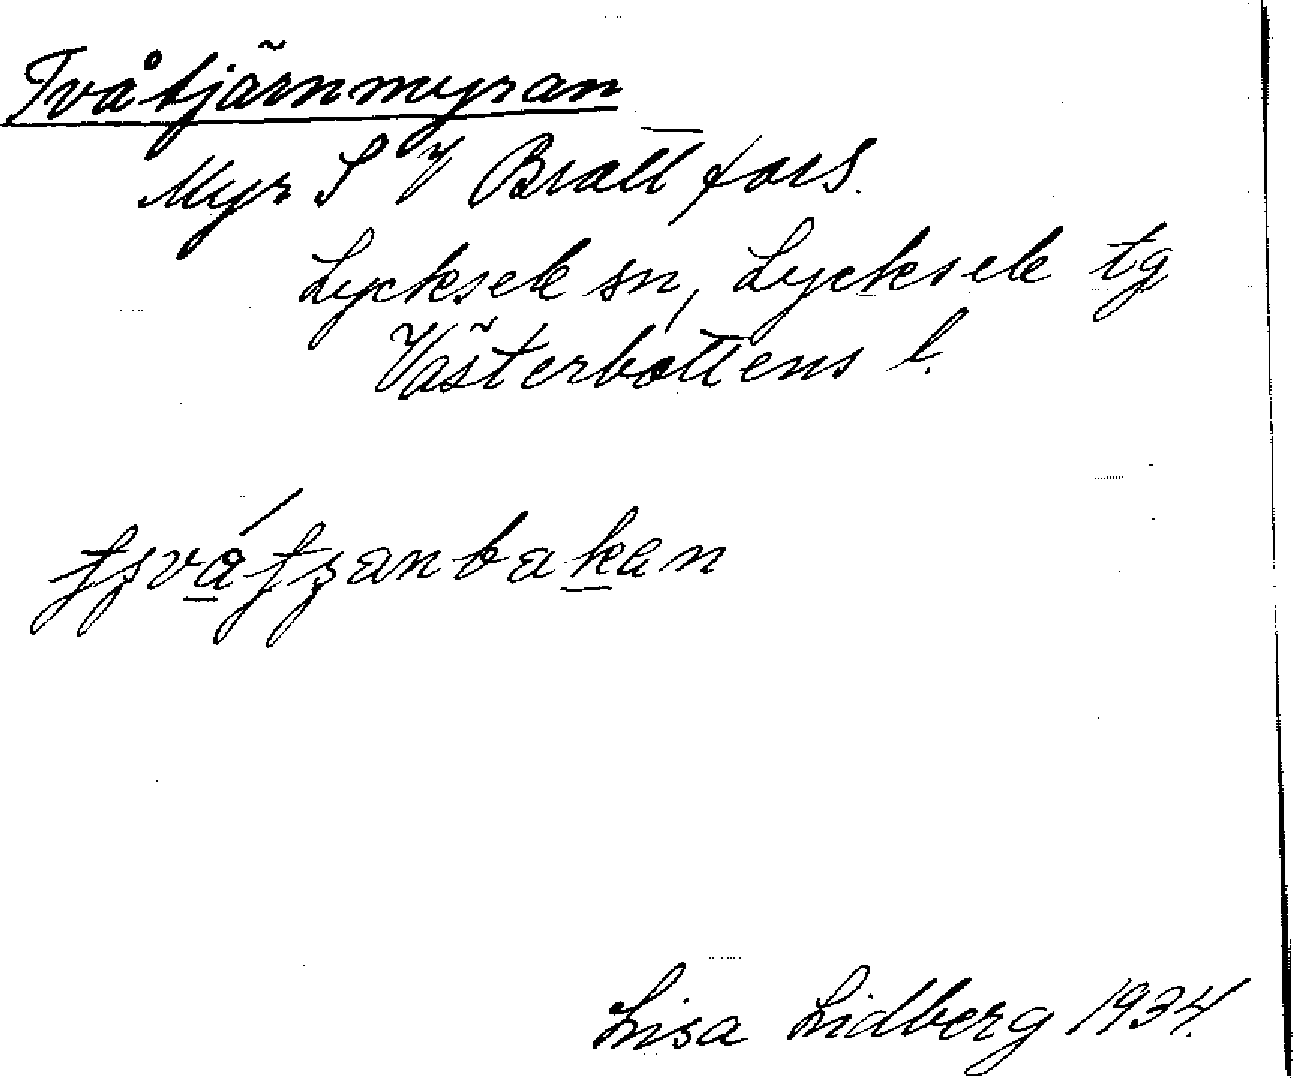 Tvåtjärnmyran
Myr S V Brattfors.
Lycksele sn, Lycksele tg
Västerbottens l.
Lisa Lidberg 1934.